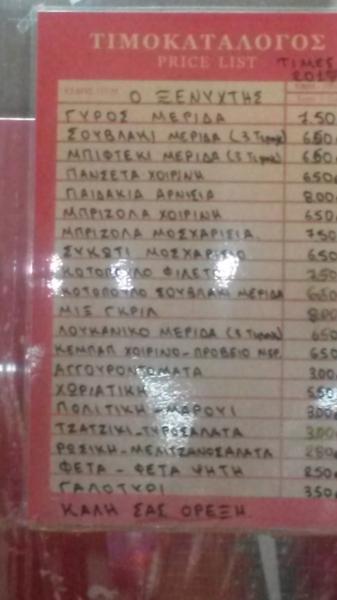 ΤΙΜΟΚΑΤΑΛΟΓΟΣ
PRICE LIST ΤΙΜΕΣ
Ο ΞΕΝΥΧΤΗΣ
ΓΥΡΟΣ ΜΕΡΙΔΑ 750
ΣΟΥΒΛΑΚΙ ΜΕΡΙΔΑ (3 Τεμαχ) 650
ΜΠΙΦΤΕΚΙ ΜΕΡΙΔΑ (3 Τεμαχ) 650
ΠΑΝΣΕΤΑ ΧΟΙΡΙΝΗ 650
ΠΑΙΔΑΚΙΑ ΑΡΝΙΣΙΑ 800
ΜΠΡΙΖΟΛΑ ΧΟΙΡΙΝΗ 650
ΜΠΡΙΖΟΛΑ ΜΟΣΧΑΡΙΣΙΑ 750
ΣΥΚΩΤΙ ΜΟΣΧΑΡΙΣΙΟ 650
ΚΟΤΟΠΟΥΛΟ ΦΙΛΕΤΟ 750
ΚΟΤΟΠΟΥΛΟ ΣΟΥΒΛΑΚΙ ΜΕΡΙΔΑ 650
ΜΙΞ ΓΚΡΙΛ 800
ΛΟΥΚΑΝΙΚΟ ΜΕΡΙΔΑ (3 Τεμαχ) 650
ΚΕΜΠΑΠ ΧΟΙΡΙΝΟ-ΠΡΟΒΕΙΟ ΜΕΡ. 650
ΑΓΓΟΥΡΟΝΤΟΜΑΤΑ 300
ΧΩΡΙΑΤΙΚΗ 550
ΠΟΛΙΤΙΚΗ-ΜΑΡΟΥΛΙ 300
ΤΖΑΤΖΙΚΙ-ΤΥΡΟΣΑΛΑΤΑ 300
ΡΩΣΙΚΗ-ΜΕΛΙΤΖΑΝΟΣΑΛΑΤΑ 280
ΦΕΤΑ - ΦΕΤΑ ΨΗΤΗ 250
ΓΑΛΟΤΥΡΙ 350
ΚΑΛΗ ΣΑΣ ΟΡΕΞΗ